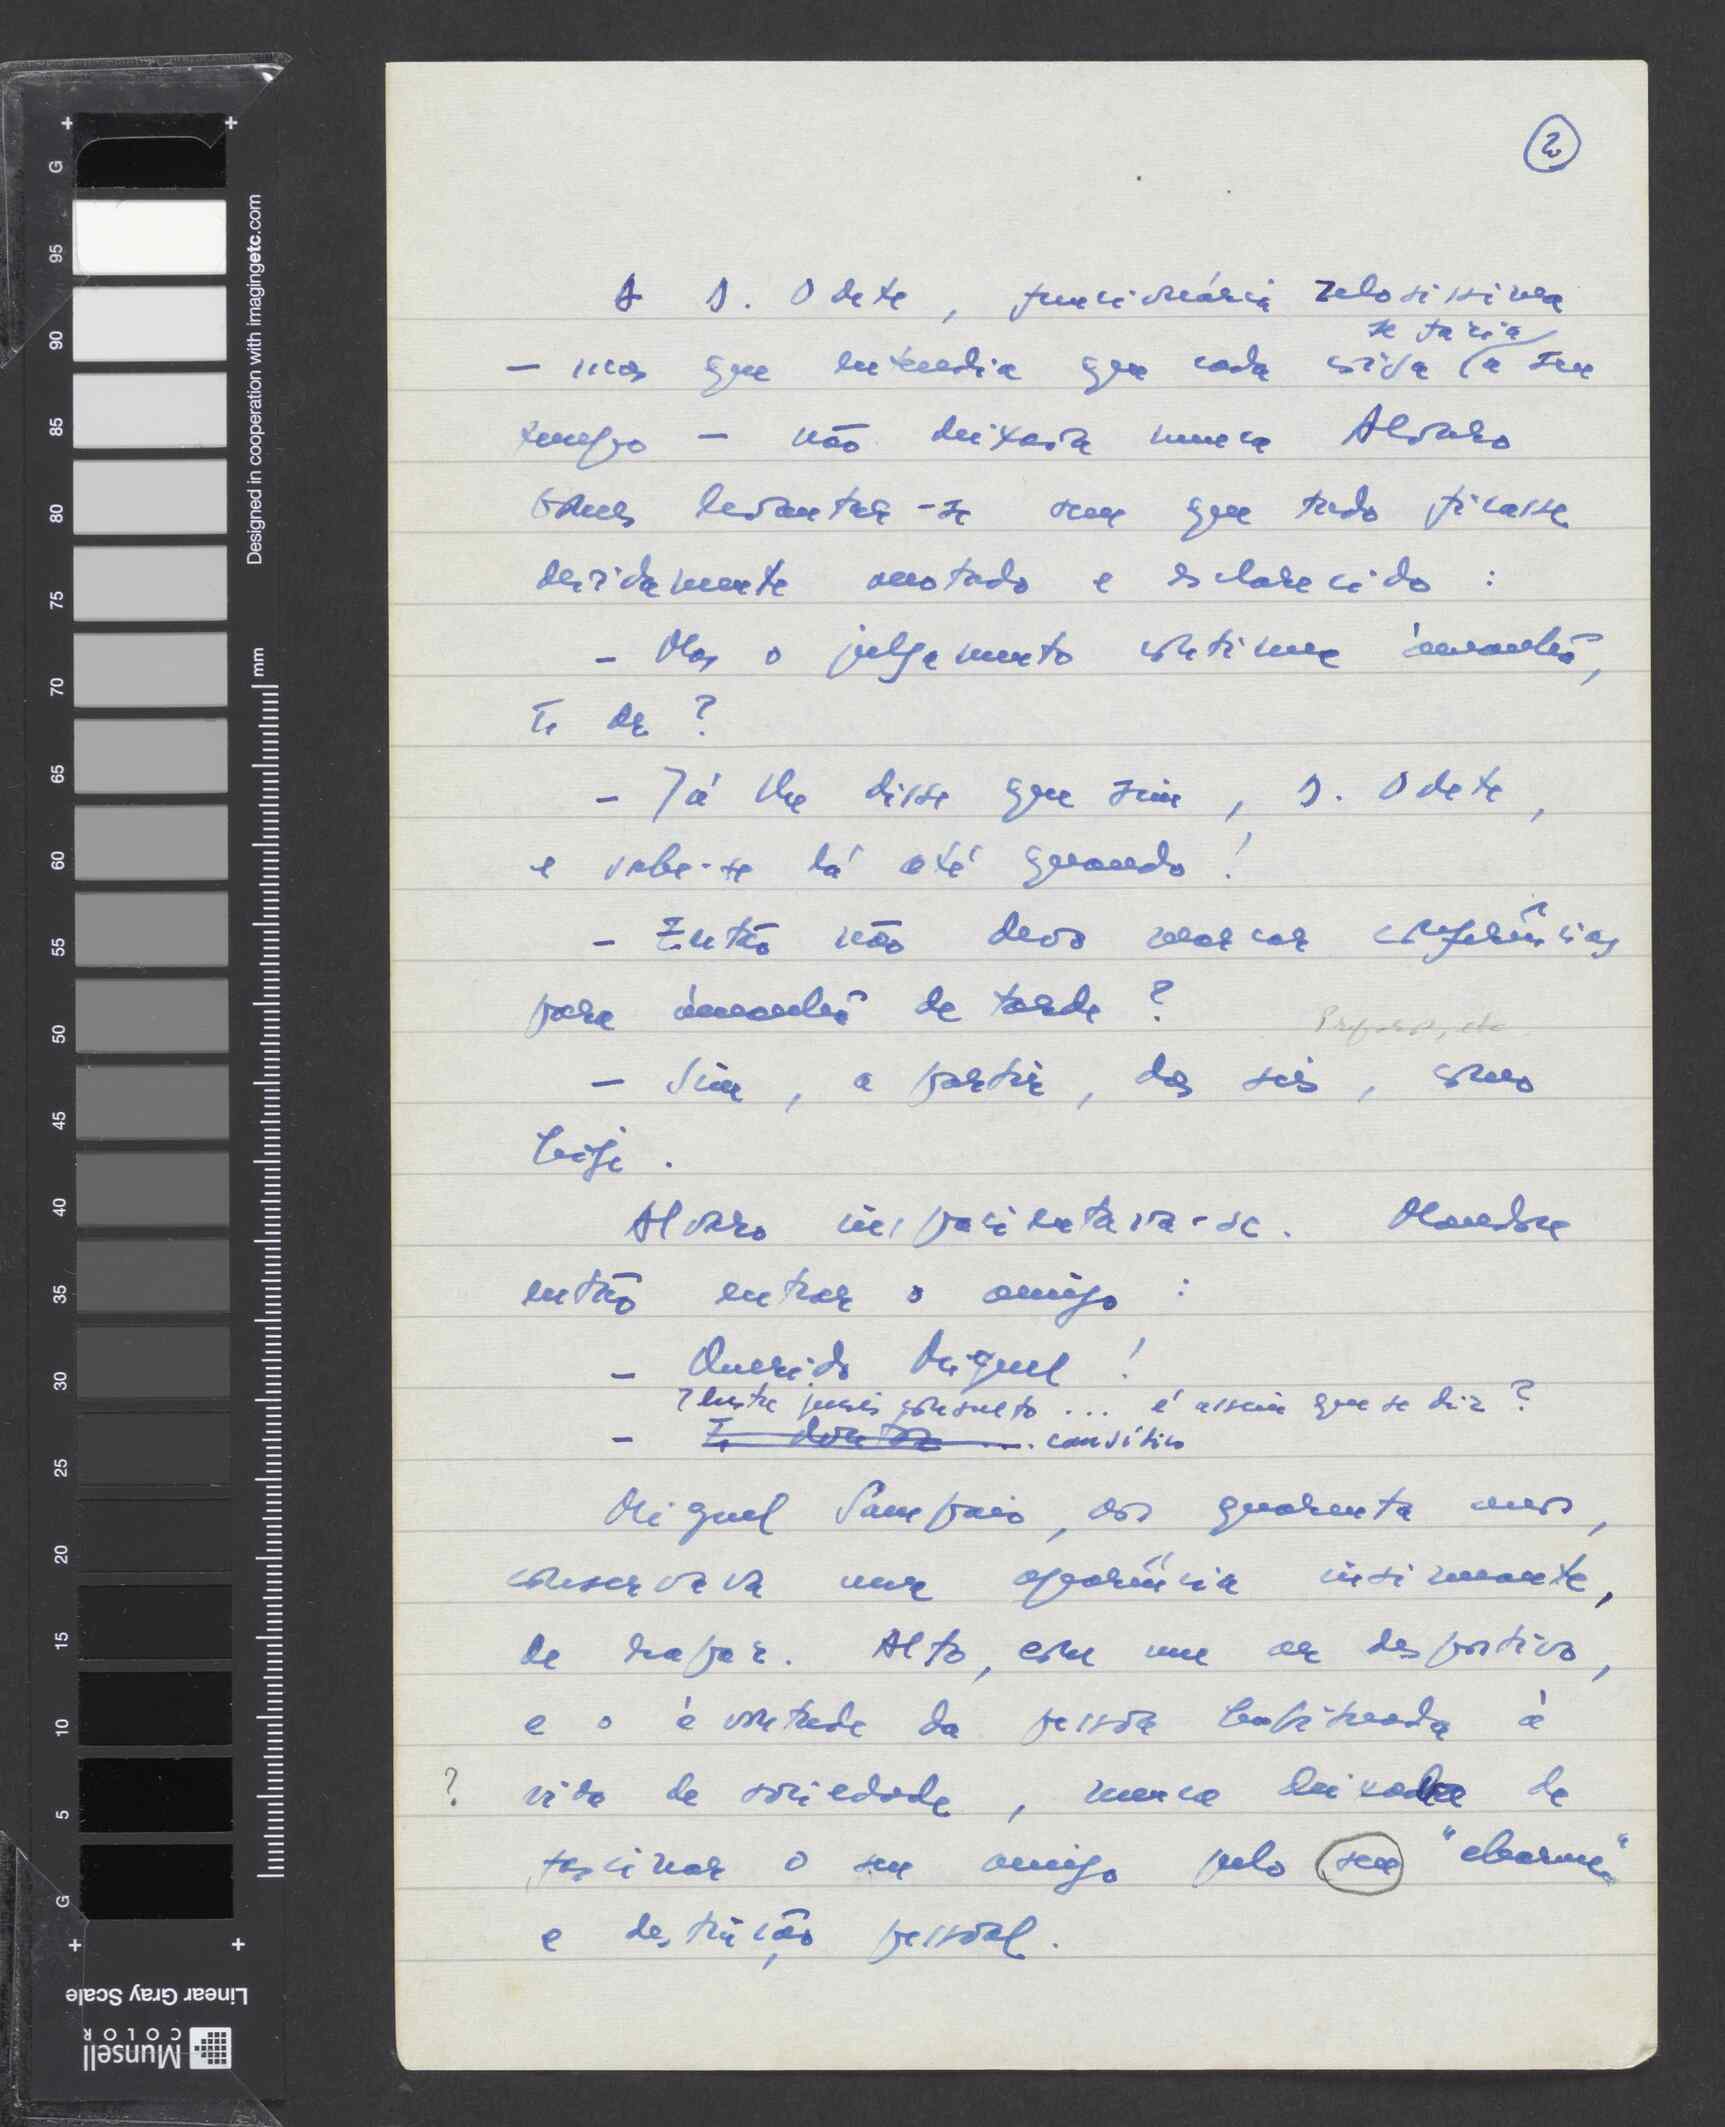 2
A D. Odete, funcionária zelosissima
se faria
— mas que entendia que cada coisa a seu
tempo — não deixaria nunca Alvaro
levantar-se sem que tudo ficasse
devidamente anotado e esclarecido :
— Mas o julgamento continua àmanhã,
Sr Dr ?
— Já lhe disse que sim, D. Odete,
e sabe-se lá até quando !
— Então não devo marcar conferências
para àmanhã de tarde ?
— Sim, a partir, das seis, como
hoje .
Alvaro impacientava-se. Mandou
então entrar o amigo :
— Querido Miguel !
Ilustre jurisconsulto ... é assim que se diz ?
—
Miguel Sampaio, aos quarenta anos,
conservava uma aparência insinuante,
de rapaz. Alto, com um ar desportivo,
e o à vontade da pessoa habituada à
? vida de sociedade, nunca deixara de
fascinar o seu amigo pelo seu "charme"
e distinção pessoal.
Designed in cooperation with imagingetc.com
mm
G 95 90 85 80 75 70 65 60 55 50 45 40 35 30 25 20 15 10 5 G
Linear Gray Scale
Munsell
COLOR